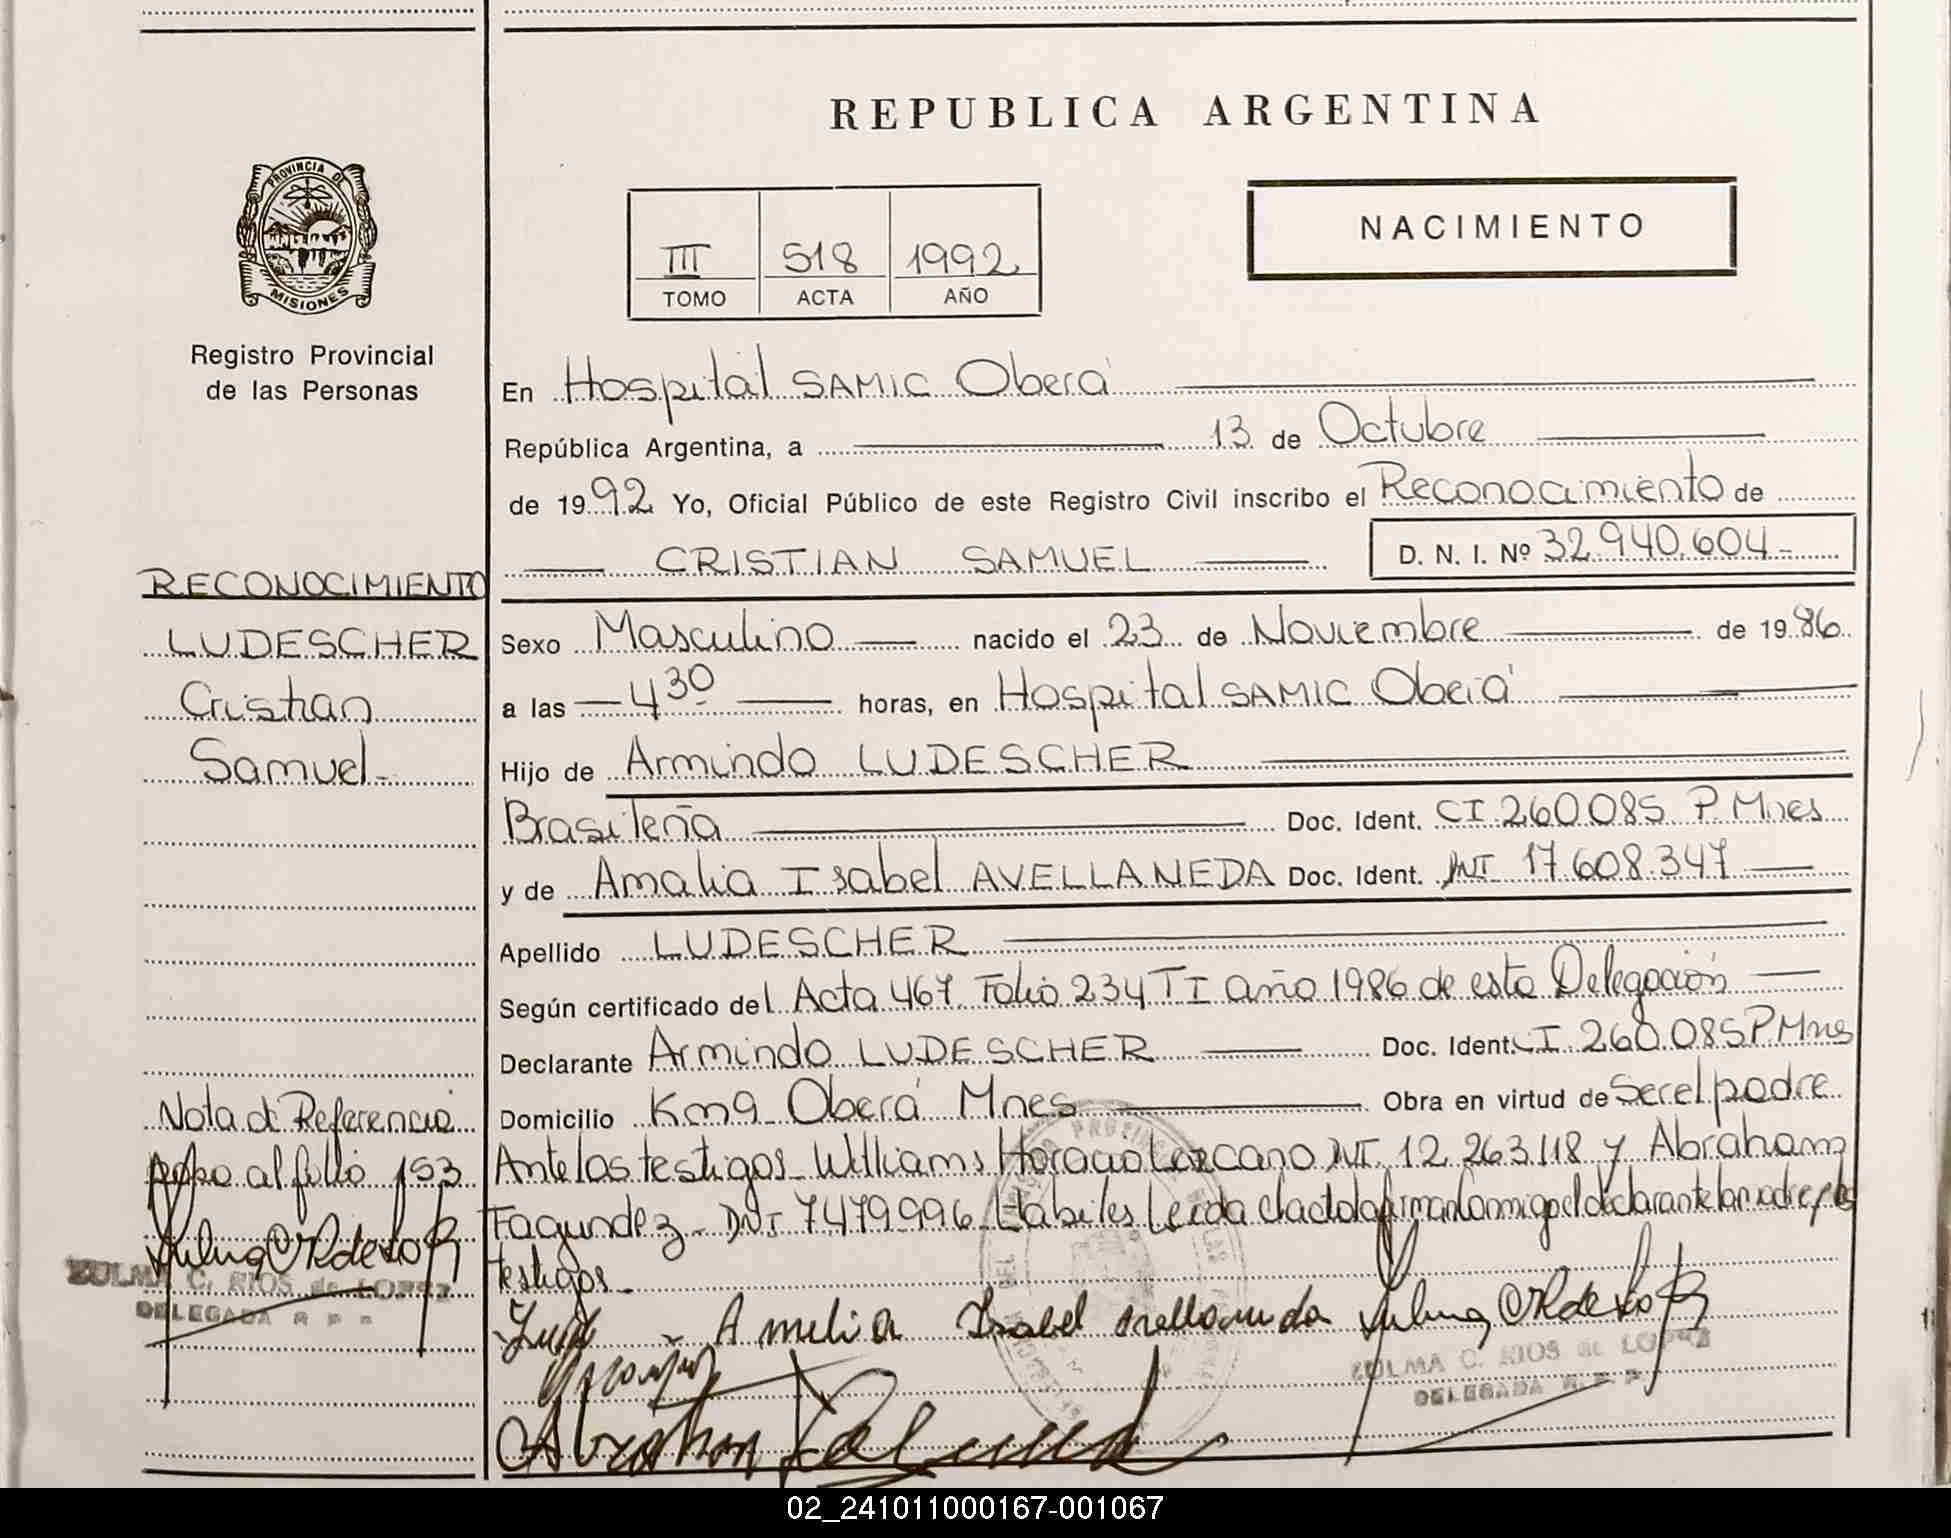 REPUBLICA ARGENTINA
PROVINCIA DE
MISIONES
Registro Provincial
de las Personas
III 518 1992
TOMO ACTA AÑO
NACIMIENTO
En Hospital SAMIC Oberá
República Argentina, a 13 de Octubre
de 1992 Yo, Oficial Público de este Registro Civil inscribo el Reconocimiento de
CRISTIAN SAMUEL D. N. I. Nº 32.940.604
RECONOCIMIENTO
LUDESCHER
Cristian
Samuel
Sexo Masculino nacido el 23 de Noviembre de 1986
a las 4 30 horas, en Hospital SAMIC Oberá
Hijo de Armindo LUDESCHER
Brasileña Doc. Ident. CI 260085 P. Mnes
y de Amalia Isabel AVELLANEDA Doc. Ident. DNI 17.608.347
Apellido LUDESCHER
Según certificado del Acta 467 Folio 234 TI año 1986 de esta Delegación
Declarante Armindo LUDESCHER Doc. Ident. CI. 260.085 P. Mnes
Domicilio Km 9 Oberá Mnes Obra en virtud de Ser el padre
Ante los testigos Williams Horacio Lezcano DNI 12.263.118 y Abraham
Fagundez - DNI 7479996 Hábiles Leída el acta la firman conmigo el declarante la madre y los
testigos.
Nota de Referencia
pasa al folio 153
ZULMA C. RIOS de LOPEZ
DELEGADA R. P. P.
Amelia Isabel Avellaneda
ZULMA C. RIOS de LOPEZ
DELEGADA R. P. P.
02_241011000167-001067